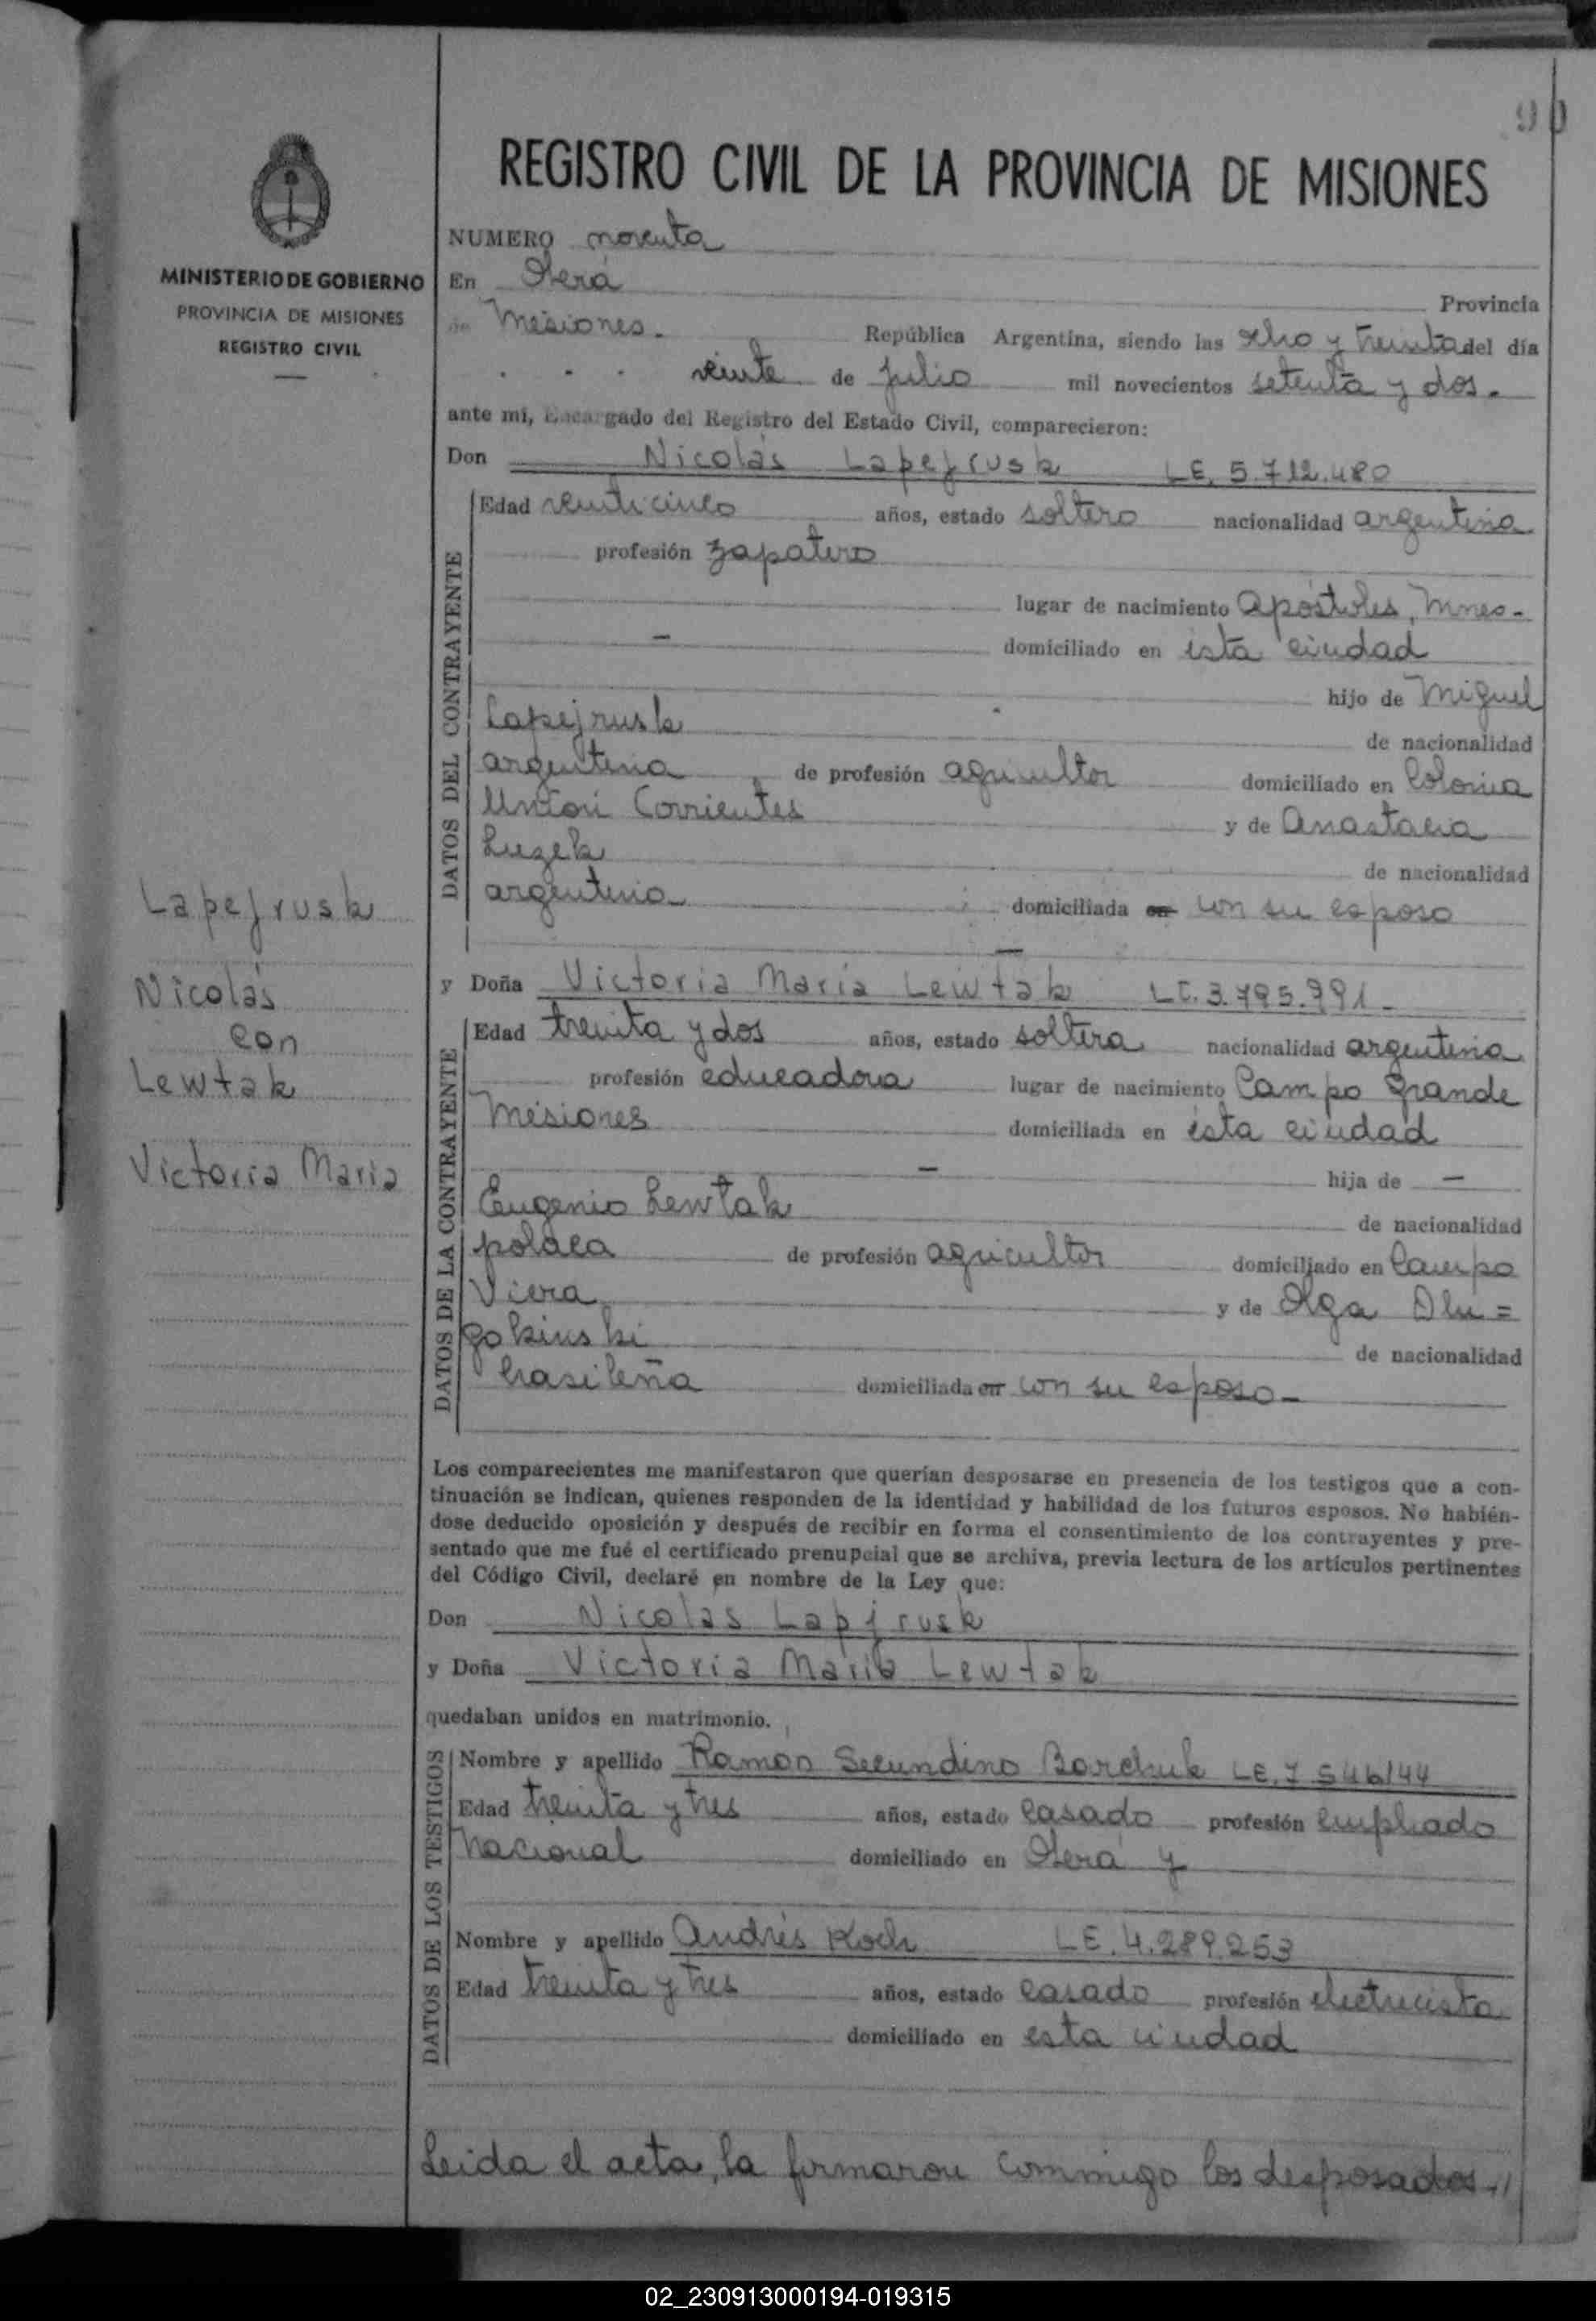 90
REGISTRO CIVIL DE LA PROVINCIA DE MISIONES
MINISTERIO DE GOBIERNO
PROVINCIA DE MISIONES
REGISTRO CIVIL
NUMERO noventa
En Oberá Provincia
de Misiones. República Argentina, siendo las ocho y treinta del día
veinte de julio mil novecientos setenta y dos.
ante mi, Encargado del Registro del Estado Civil, comparecieron:
Don Nicolás Lapejrusk LE. 5.712.480
DATOS DEL CONTRAYENTE
Edad veinticinco años, estado soltero nacionalidad argentina
profesión zapatero
lugar de nacimiento Apóstoles, Mnes.-
— domiciliado en ésta ciudad
hijo de Miguel
Lapejrusk de nacionalidad
argentina de profesión agricultor domiciliado en Colonia
Unión Corrientes y de Anastacia
Luzek de nacionalidad
argentina domiciliada en con su esposo
—
y Doña Victoria María Lewtak LC. 3.795.791-
DATOS DE LA CONTRAYENTE
Edad treinta y dos años, estado soltera nacionalidad argentina
profesión educadora lugar de nacimiento Campo Grande
Misiones domiciliada en ésta ciudad
— hija de —
Eugenio Lewtak de nacionalidad
polaca de profesión agricultor domiciliado en Campo
Viera y de Olga Dlu=
gokinski de nacionalidad
brasileña domiciliada en con su esposo-
Lapejrusk
Nicolás
con
Lewtak
Victoria Maria
Los comparecientes me manifestaron que querían desposarse en presencia de los testigos que a con-
tinuación se indican, quienes responden de la identidad y habilidad de los futuros esposos. No habién-
dose deducido oposición y después de recibir en forma el consentimiento de los contrayentes y pre-
sentado que me fué el certificado prenupcial que se archiva, previa lectura de los artículos pertinentes
del Código Civil, declaré en nombre de la Ley que:
Don Nicolás Lapjrusk
y Doña Victoria María Lewtak
quedaban unidos en matrimonio.
DATOS DE LOS TESTIGOS
Nombre y apellido Ramón Secundino Barchuk LE. 7 546144
Edad treinta y tres años, estado casado profesión empleado
nacional domiciliado en Oberá y
Nombre y apellido Andrés Koch LE. 4.289.253
Edad treinta y tres años, estado casado profesión electricista
domiciliado en esta ciudad
Leida el acta, la firmaron commigo los desposados //
02_230913000194-019315